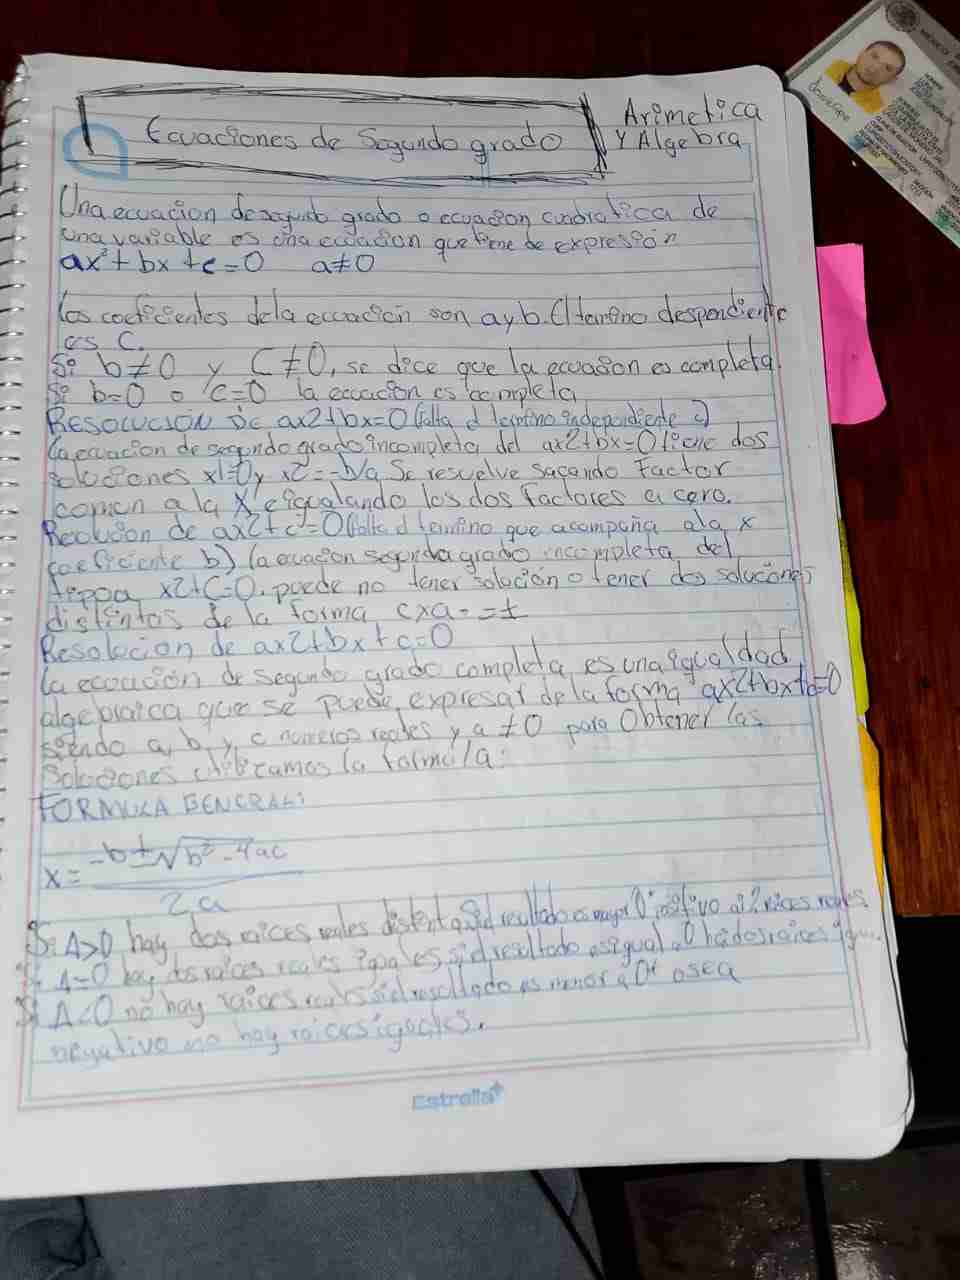 Ecuaciones de Segundo grado
Arimetica
Y Algebra
Una ecuacion de segundo grado o ecuacion cuadratica de
una variable es una ecuacion que tiene de expresión
ax²+bx+c=0 a≠0
Los coeficientes de la ecuación son a y b. El termino despendiente
es C.
Si b≠0 y C≠0, se dice que la ecuasion es completa.
Si b=0 o c=0 la ecuasion es completa
RESOLUCION DE ax2+bx=0 (falta el termino independiente c)
La ecuacion de segundo grado incompleta del ax2+bx=0 tiene dos
soluciones x1=0 y x2=-b/a. Se resuelve sacando Factor
comun a la X e igualando los dos factores a cero.
de ax2+c=0 (falta el termino que acompaña a la x
coeficiente b) La ecuacion segunda grado incompleta del
x2+C=0. puede no tener solución o tener dos soluciones
distintas de la forma cxa-=±
Resolucion de ax2+bx+c=0
La ecuación de segundo grado completa es una igualdad
algebraica que se puede expresar de la forma ax2+bx+c=0
siendo a, b y c numeros reales y a≠0 para Obtener las
soluciones utilizamos la formula:
FORMULA GENERAL:
x= -b±√b²-4ac
2a
Si A>0 hay dos raices reales si el resultado es mayor 0 reales
Si A=0 hay dos raices reales iguales si el resultado es igual a 0
Si A<0 no hay raices reales si el resultado es menor a 0 osea
negativo no hay raices iguales.
Estrella
MÉXICO